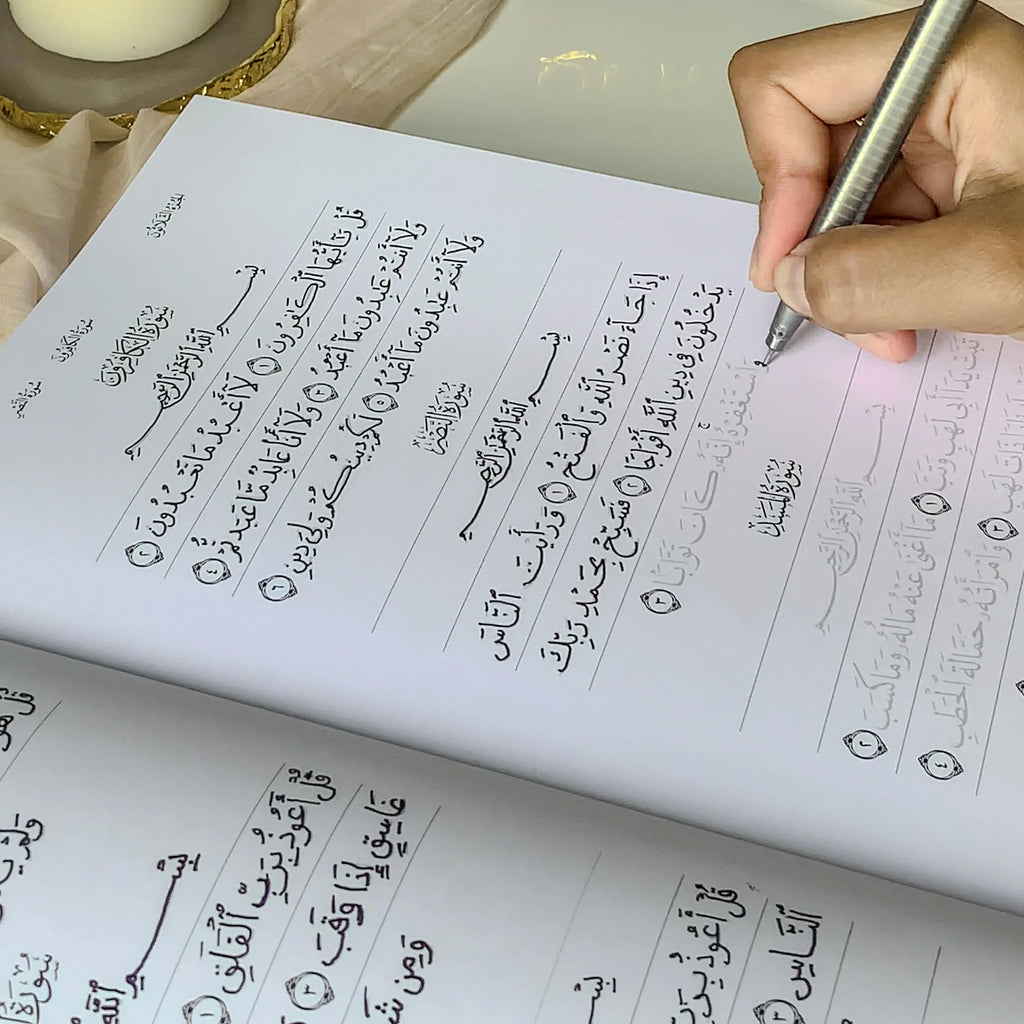 الجزء الثلاثون
سورة الكافرون
سورة النصر
سُورَةُ الكَافِرُونَ
بِسْمِ ٱللَّهِ ٱلرَّحْمَٰنِ ٱلرَّحِيمِ
قُلْ يَٰٓأَيُّهَا ٱلْكَٰفِرُونَ ١ لَآ أَعْبُدُ مَا تَعْبُدُونَ ٢
وَلَآ أَنتُمْ عَٰبِدُونَ مَآ أَعْبُدُ ٣ وَلَآ أَنَا۠ عَابِدٌ مَّا عَبَدتُّمْ ٤
وَلَآ أَنتُمْ عَٰبِدُونَ مَآ أَعْبُدُ ٥ لَكُمْ دِينُكُمْ وَلِىَ دِينِ ٦
سُورَةُ النَّصْرِ
بِسْمِ ٱللَّهِ ٱلرَّحْمَٰنِ ٱلرَّحِيمِ
إِذَا جَآءَ نَصْرُ ٱللَّهِ وَٱلْفَتْحُ ١ وَرَأَيْتَ ٱلنَّاسَ
يَدْخُلُونَ فِى دِينِ ٱللَّهِ أَفْوَاجًا ٢ فَسَبِّحْ بِحَمْدِ رَبِّكَ
وَٱسْتَغْفِرْهُ إِنَّهُۥ كَانَ تَوَّابًۢا ٣
سُورَةُ المَسَدِ
بِسْمِ ٱللَّهِ ٱلرَّحْمَٰنِ ٱلرَّحِيمِ
تَبَّتْ يَدَآ أَبِى لَهَبٍ وَتَبَّ ١ مَآ أَغْنَىٰ عَنْهُ مَالُهُۥ وَمَا كَسَبَ ٢
ذَاتَ لَهَبٍ ٣ وَٱمْرَأَتُهُۥ حَمَّالَةَ ٱلْحَطَبِ ٤
قُلْ هُوَ
سُورَةُ
بِسْمِ ٱللَّهِ
قُلْ أَعُوذُ بِرَبِّ ٱلْفَلَقِ ١
غَاسِقٍ إِذَا وَقَبَ ٣
وَمِن
بِسْمِ
قُلْ أَعُوذُ بِرَبِّ
ٱلنَّاسِ ٣